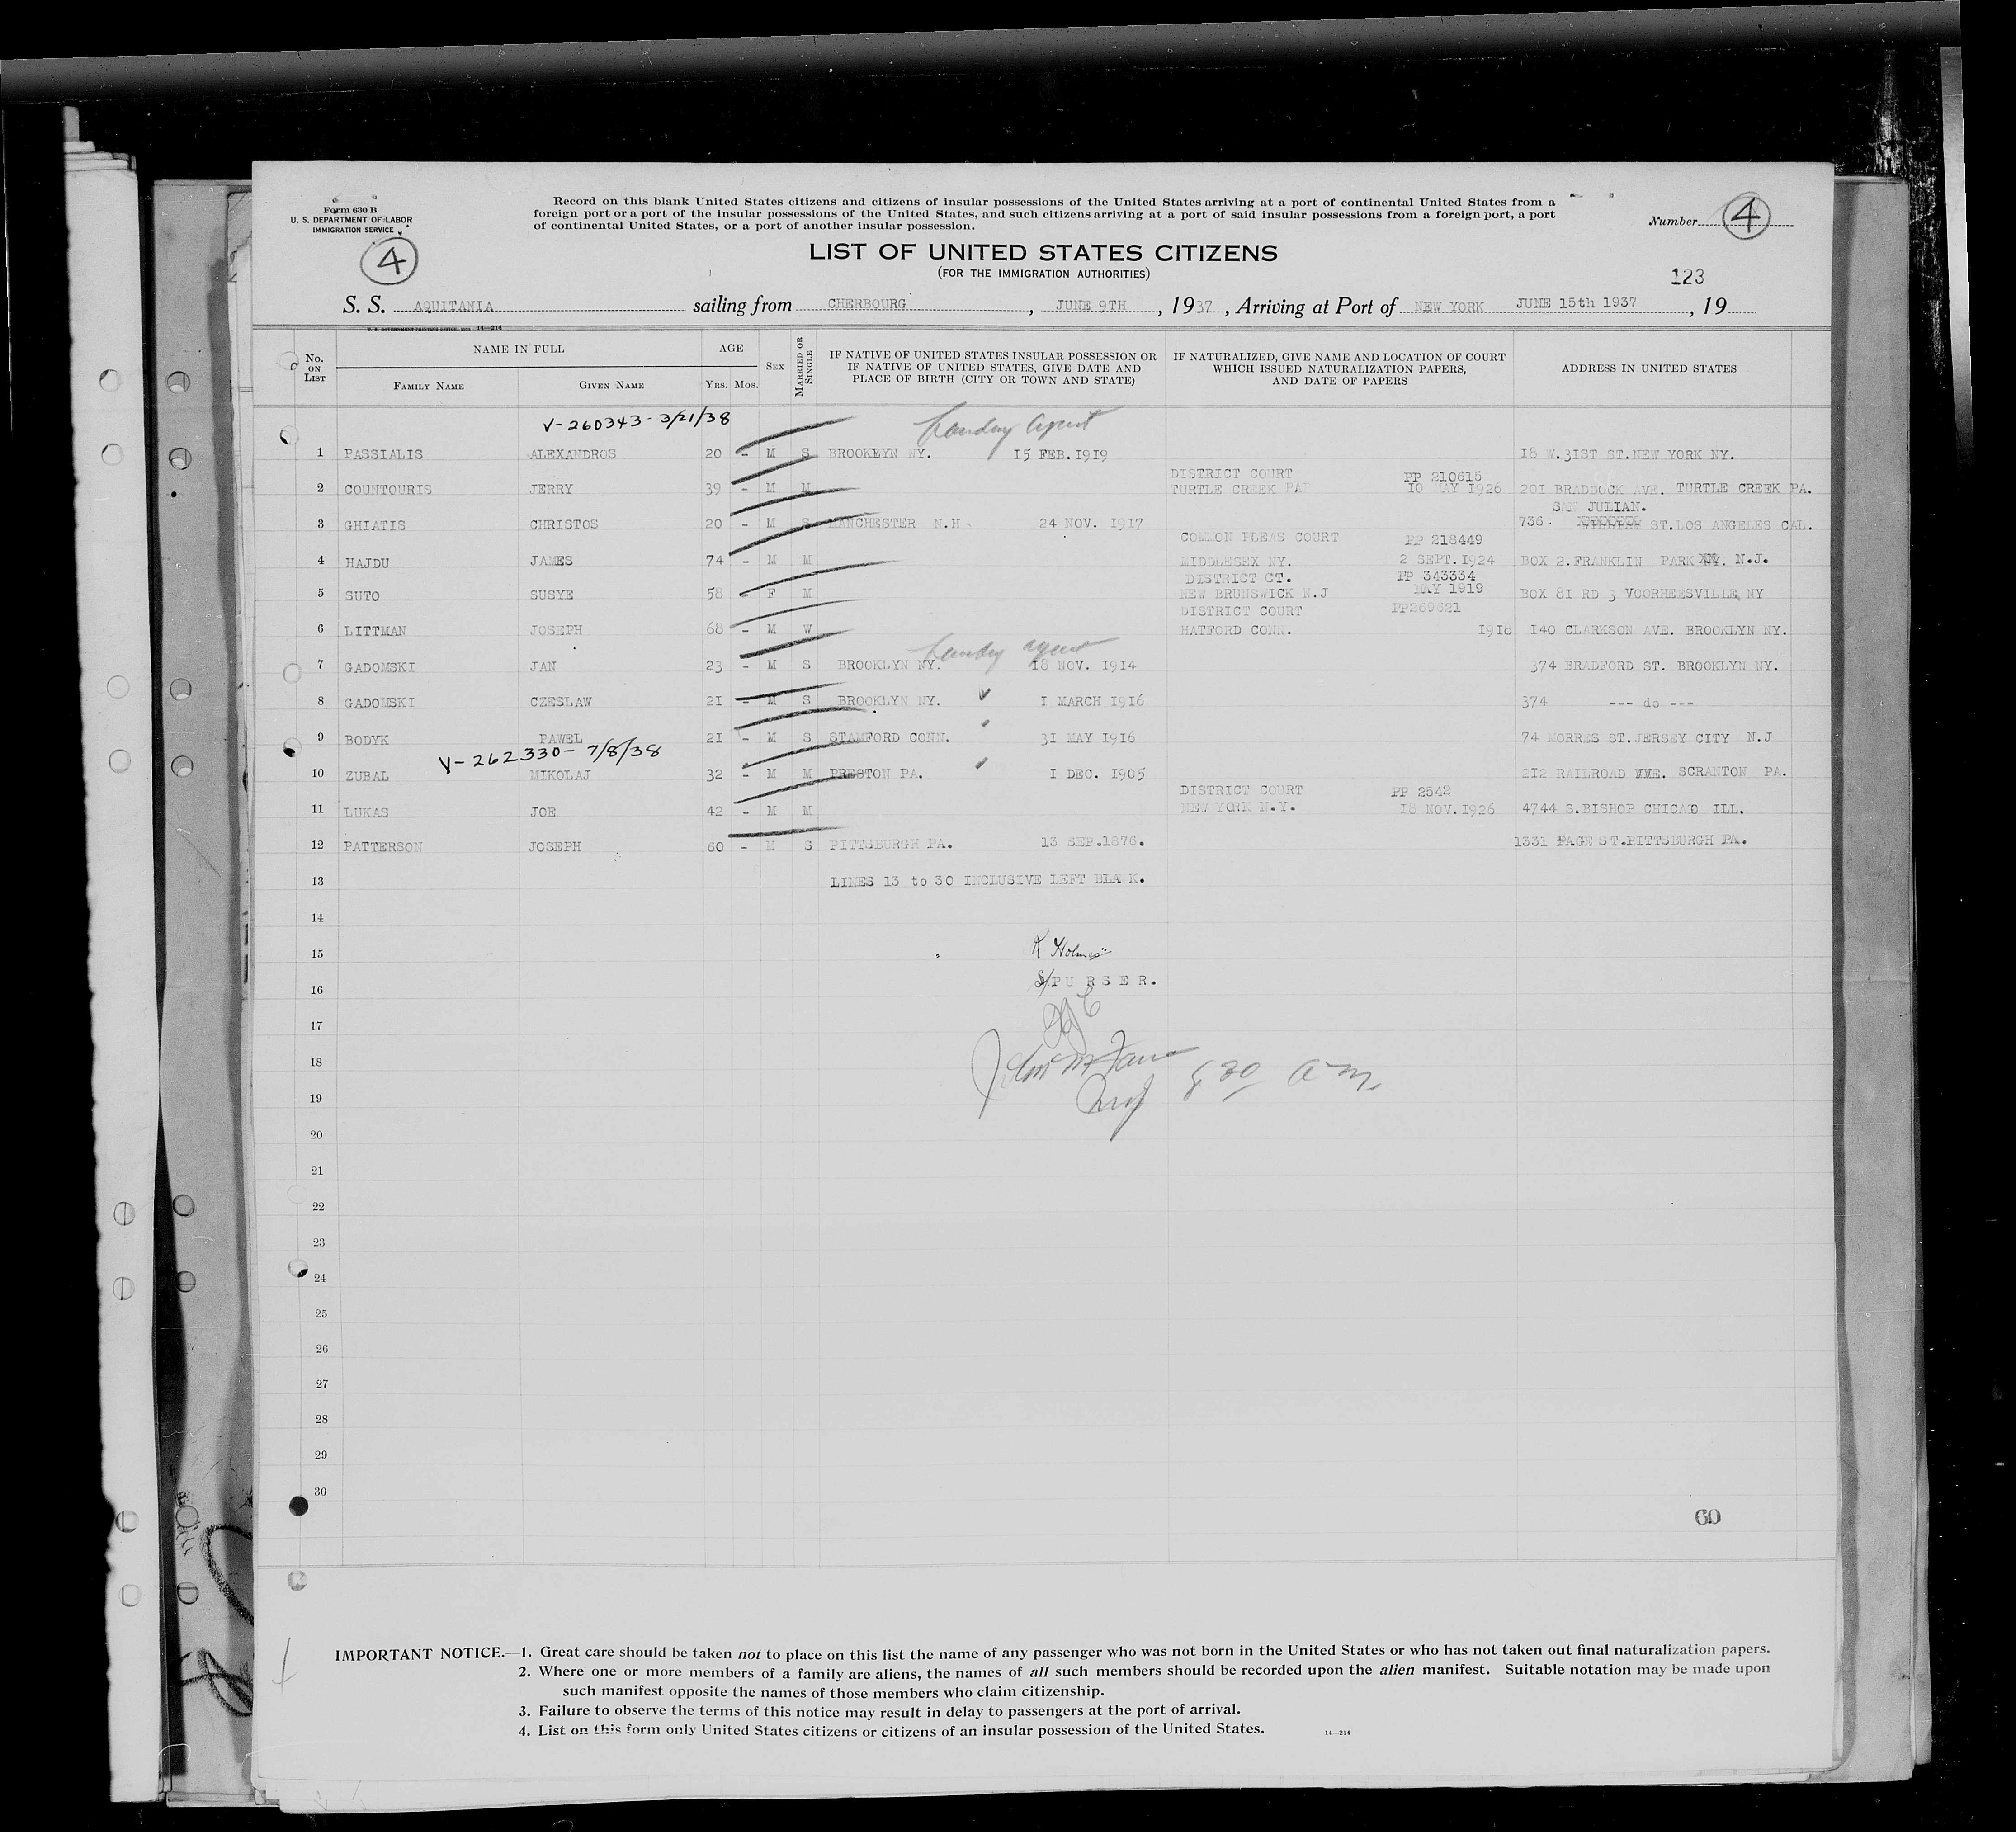 Form 630 B
U. S. DEPARTMENT OF LABOR
IMMIGRATION SERVICE
4
Record on this blank United States citizens and citizens of insular possessions of the United States arriving at a port of continental United States from a
foreign port or a port of the insular possessions of the United States, and such citizens arriving at a port of said insular possessions from a foreign port, a port
of continental United States, or a port of another insular possession.
Number 4
LIST OF UNITED STATES CITIZENS
(FOR THE IMMIGRATION AUTHORITIES)
123
S. S. AQUITANIA sailing from CHERBOURG , JUNE 9TH , 1937 , Arriving at Port of NEW YORK JUNE 15th 1937 , 19
U. S. GOVERNMENT PRINTING OFFICE 14—214
No. ON LIST NAME IN FULL AGE SEX MARRIED OR SINGLE IF NATIVE OF UNITED STATES INSULAR POSSESSION OR IF NATIVE OF UNITED STATES, GIVE DATE AND PLACE OF BIRTH (CITY OR TOWN AND STATE) IF NATURALIZED, GIVE NAME AND LOCATION OF COURT WHICH ISSUED NATURALIZATION PAPERS, AND DATE OF PAPERS ADDRESS IN UNITED STATES
FAMILY NAME GIVEN NAME YRS. MOS.
V-260343-3/21/38 Landing agent
1 PASSIALIS ALEXANDROS 20 - M S BROOKLYN NY. 15 FEB.1919 18 W.31ST ST.NEW YORK NY.
DISTRICT COURT PP 210615
2 COUNTOURIS JERRY 39 - M M TURTLE CREEK PA 10 MAY 1926 201 BRADDOCK AVE. TURTLE CREEK PA.
SAN JULIAN.
3 GHIATIS CHRISTOS 20 - M S MANCHESTER N.H. 24 NOV. 1917 736. ST.LOS ANGELES CAL.
COMMON PLEAS COURT PP 218449
4 HAJDU JAMES 74 - M M MIDDLESEX NY. 2 SEPT.1924 BOX 2.FRANKLIN PARK N.J.
DISTRICT CT. PP 343334
5 SUTO SUSYE 58 - F M NEW BRUNSWICK N.J MAY 1919 BOX 81 RD 3 VOORHEESVILLE NY
DISTRICT COURT PP269621
6 LITTMAN JOSEPH 68 - M W HATFORD CONN. 1918 140 CLARKSON AVE. BROOKLYN NY.
Landing agent
7 GADOMSKI JAN 23 - M S BROOKLYN NY. 18 NOV. 1914 374 BRADFORD ST. BROOKLYN NY.
8 GADOMSKI CZESLAW 21 - M S BROOKLYN NY. 1 MARCH 1916 374 --- do ---
9 BODYK PAWEL 21 - M S STAMFORD CONN. 31 MAY 1916 74 MORRES ST.JERSEY CITY N.J
V-262330-7/8/38
10 ZUBAL MIKOLAJ 32 - M M PRESTON PA. 1 DEC. 1905 212 RAILROAD SCRANTON PA.
DISTRICT COURT PP 2542
11 LUKAS JOE 42 - M M NEW YORK N.Y. 18 NOV.1926 4744 S.BISHOP CHICAGO ILL.
12 PATTERSON JOSEPH 60 - M S PITTSBURGH PA. 13 SEP.1876. 1331 PAGE ST.PITTSBURGH PA.
13 LINES 13 to 30 INCLUSIVE LEFT BLANK.
14
15 R Holmes
16 S/PURSER.
17
18
19 830 a m.
20
21
22
23
24
25
26
27
28
29
30
60
IMPORTANT NOTICE.—1. Great care should be taken not to place on this list the name of any passenger who was not born in the United States or who has not taken out final naturalization papers.
2. Where one or more members of a family are aliens, the names of all such members should be recorded upon the alien manifest. Suitable notation may be made upon
such manifest opposite the names of those members who claim citizenship.
3. Failure to observe the terms of this notice may result in delay to passengers at the port of arrival.
4. List on this form only United States citizens or citizens of an insular possession of the United States. 14—214